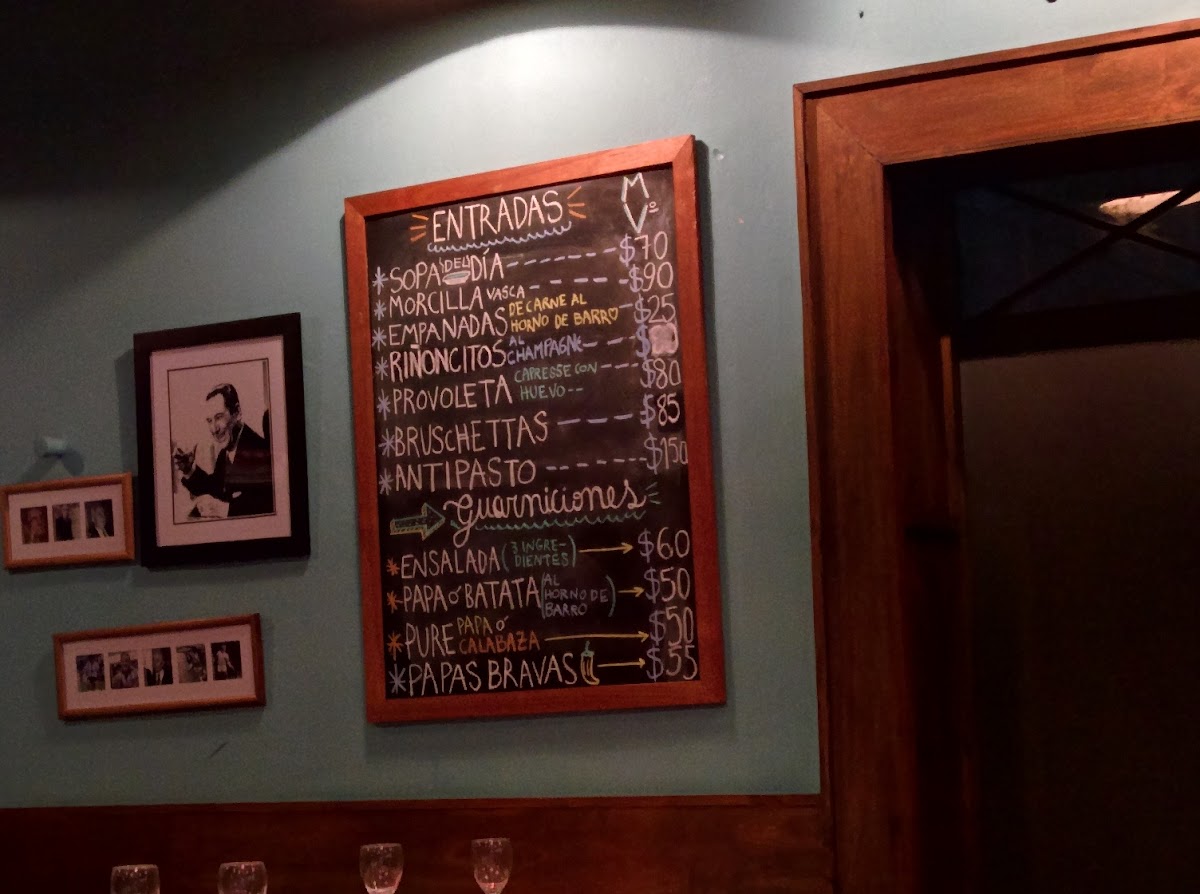 ENTRADAS
M
Vº
* SOPA DEL DÍA $70
* MORCILLA VASCA $90
* EMPANADAS DE CARNE AL HORNO DE BARRO $25
* RIÑONCITOS AL CHAMPAGNE $
* PROVOLETA CAPRESSE CON HUEVO $80
* BRUSCHETTAS $85
* ANTIPASTO $150
Guarniciones
* ENSALADA (3 INGRE-DIENTES) $60
* PAPA Ó BATATA (AL HORNO DE BARRO) $50
* PURE PAPA Ó CALABAZA $50
* PAPAS BRAVAS $55